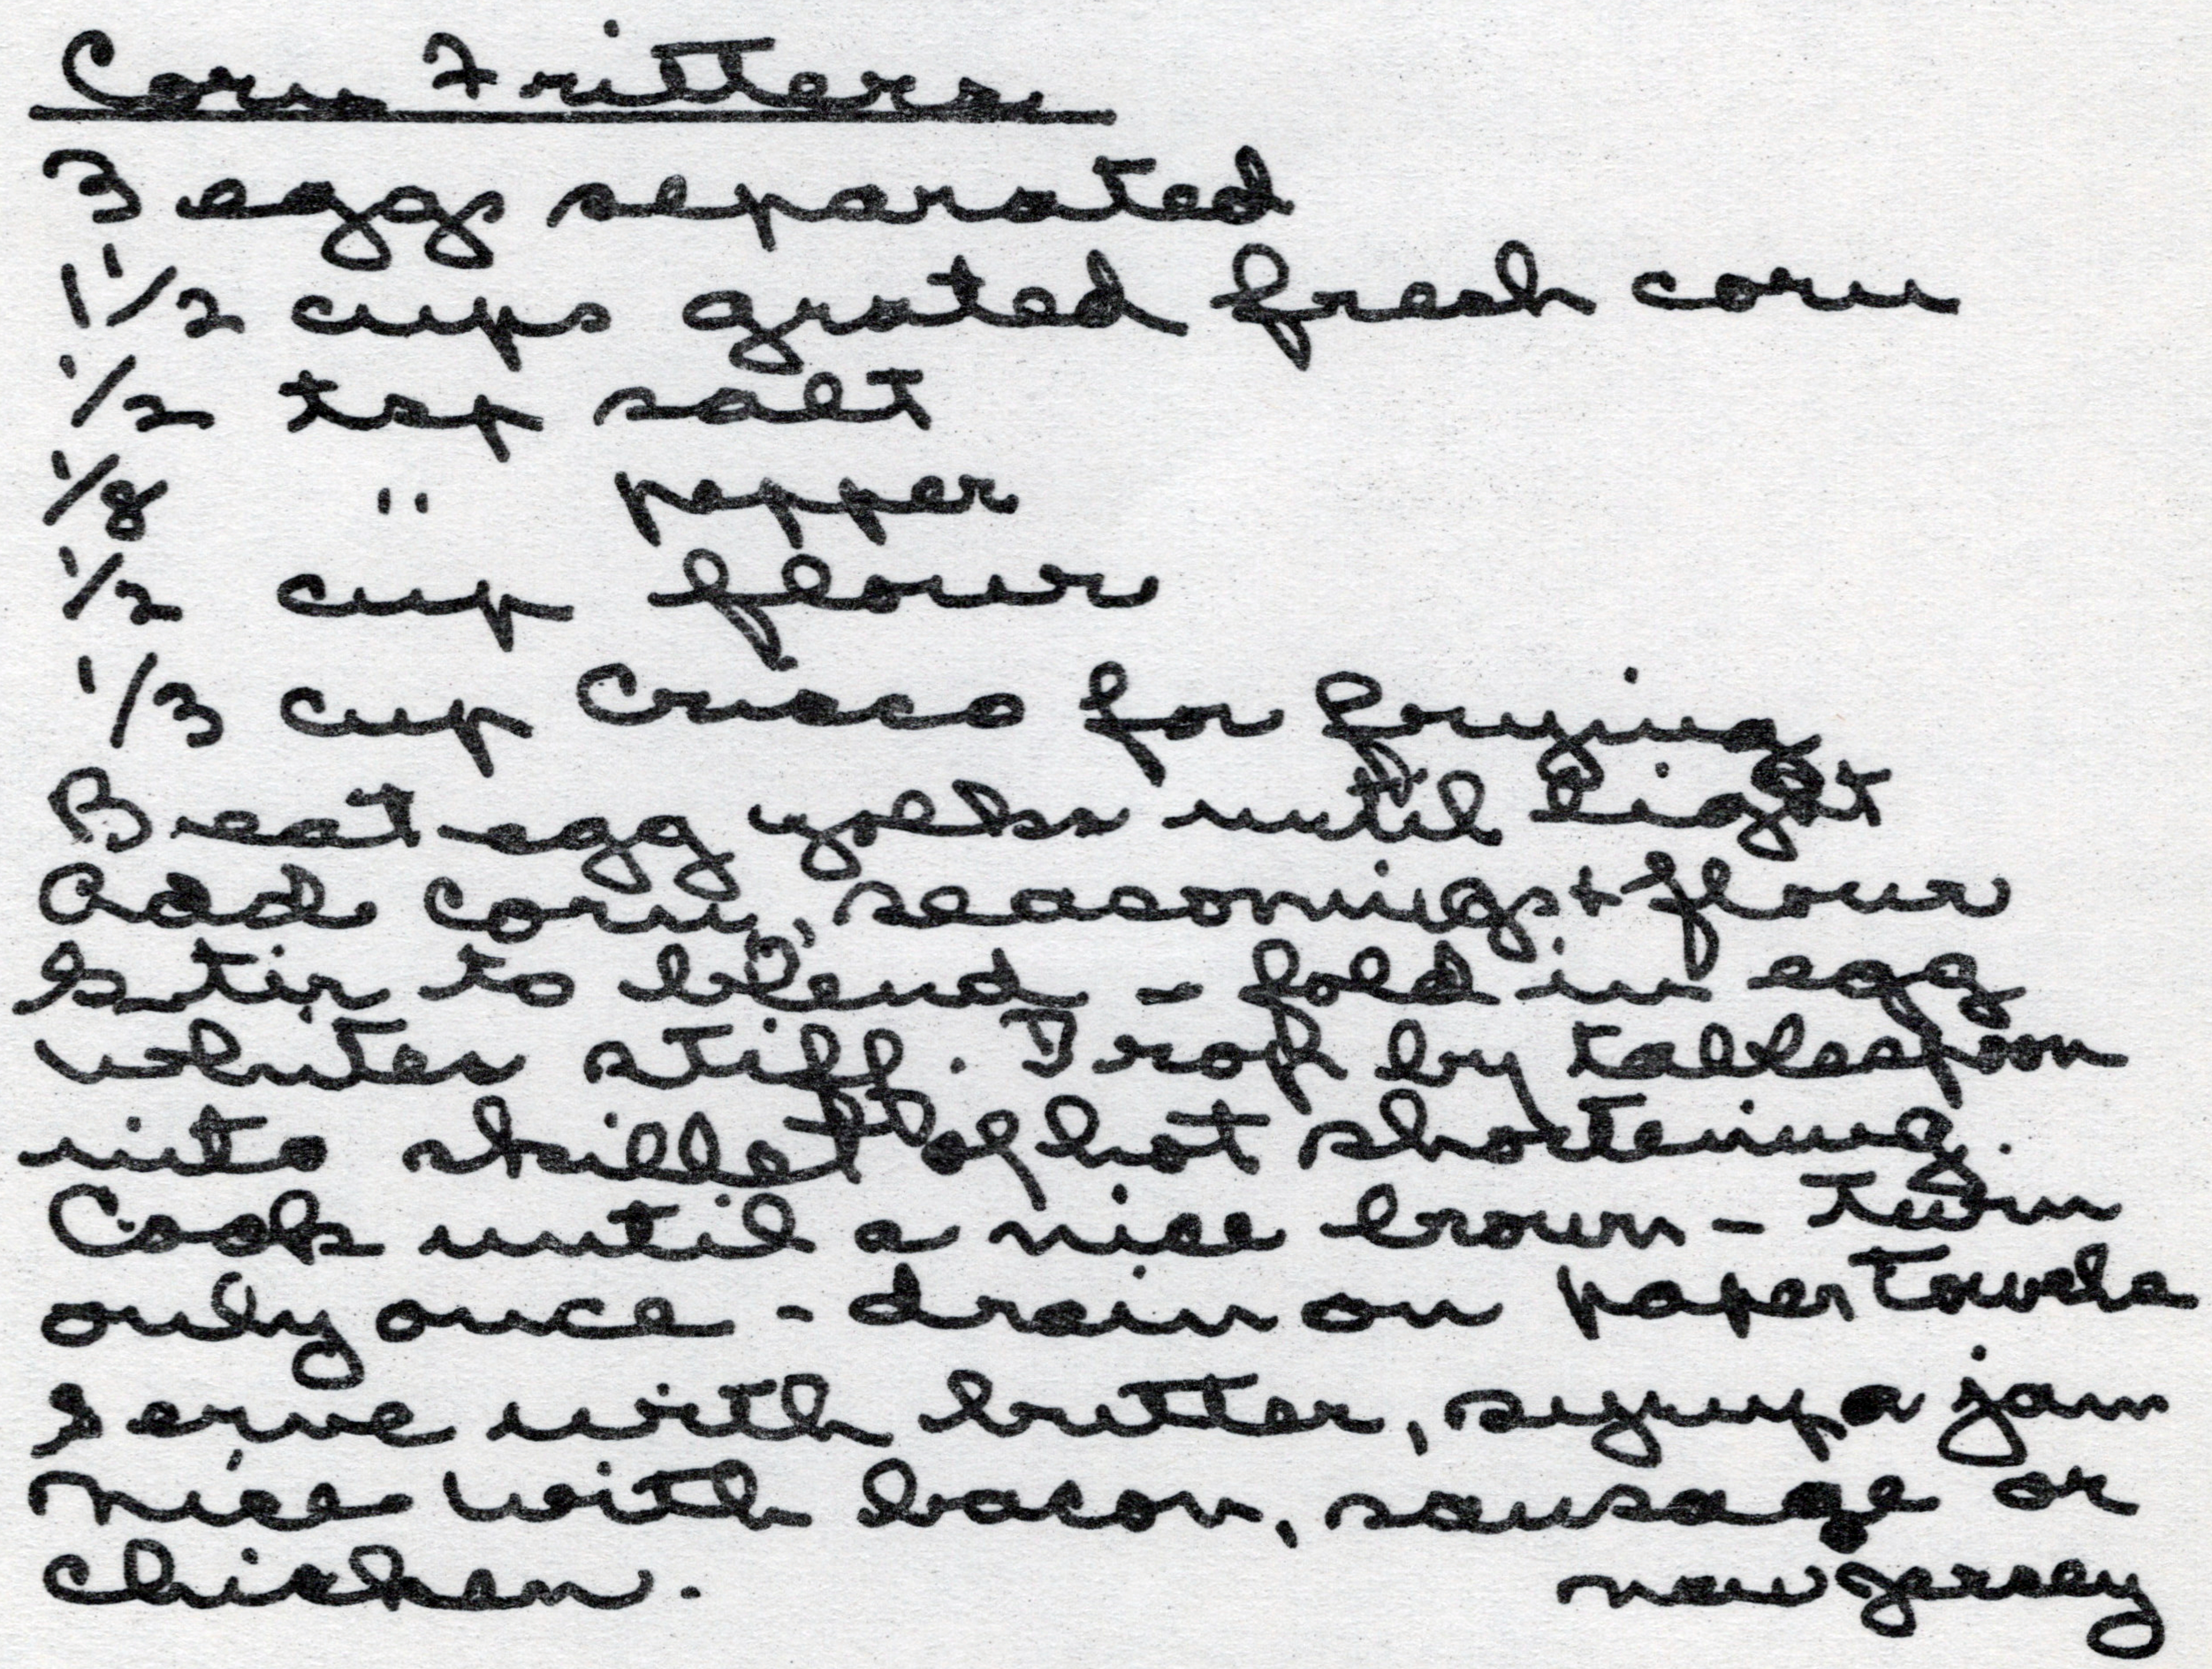 Corn Fritters
3 eggs separated
1 1/2 cups grated fresh corn
1/2 tsp salt
1/8 " pepper
1/2 cup flour
1/3 cup Crisco for frying
Beat egg yolks until light
Add corn, seasonings + flour
Stir to blend - fold in egg
whites stiff. Drop by tablespoon
into skillet of hot shortening.
Cook until a nice brown - turn
only once - drain on paper towels
Serve with butter, syrup a jam
Nice with bacon, sausage or
chicken. New Jersey